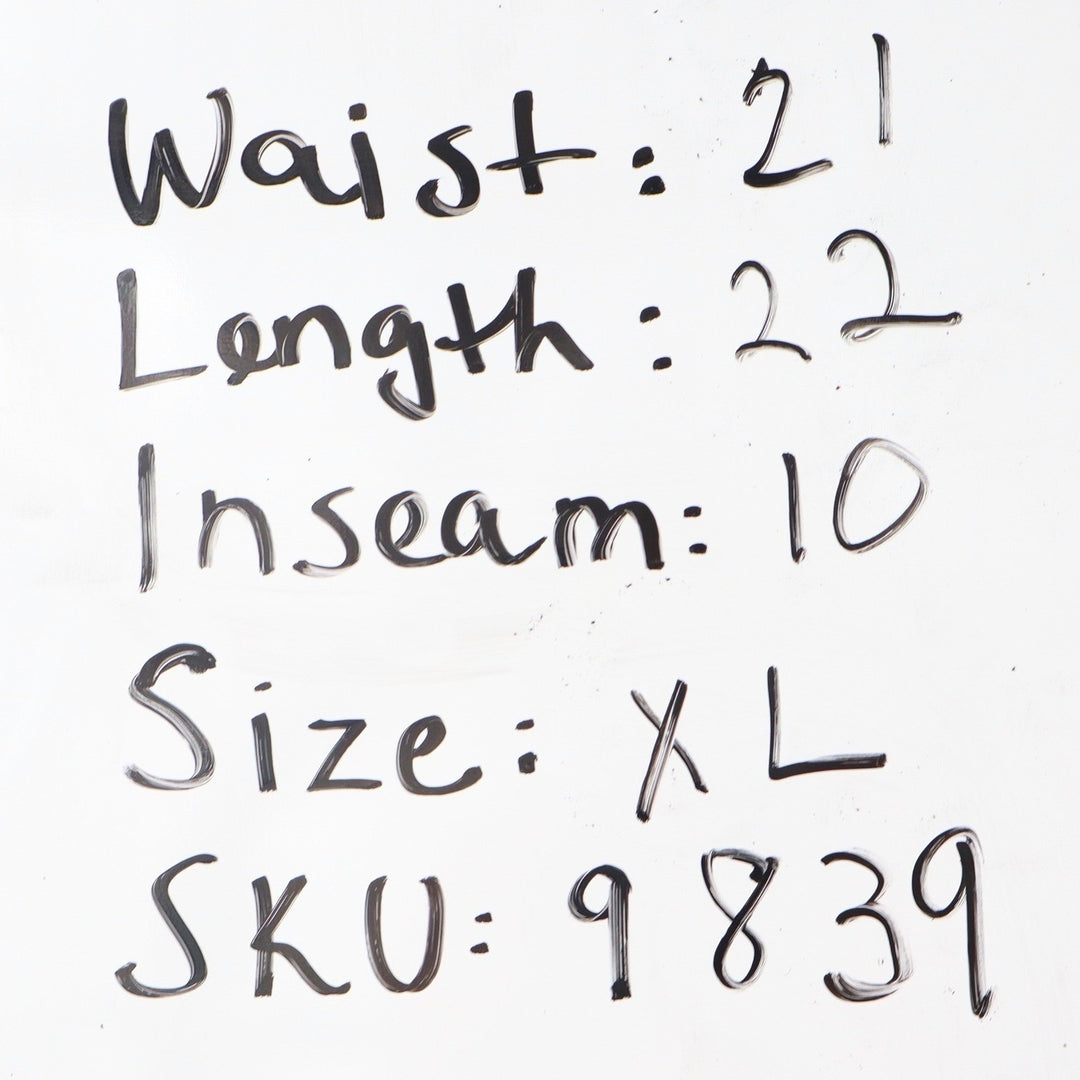 Waist: 21
Length: 22
Inseam: 10
Size: XL
SKU: 9839